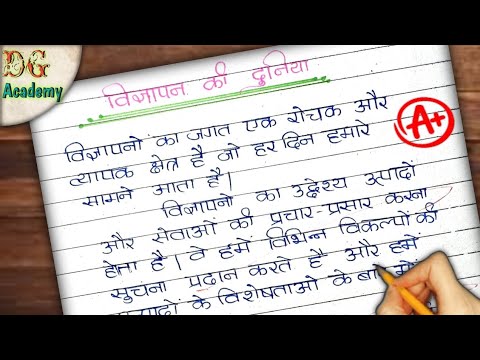 DG
Academy
विज्ञापन की दुनिया
A+
विज्ञापनो का जगत एक रोचक और
व्यापक क्षेत्र है जो हर दिन हमारे
सामने आता है।
विज्ञापनो का उद्देश्य उत्पादों
और सेवाओं की प्रचार-प्रसार करना
होता है। वे हमें विभिन्न विकल्पों की
सुचना प्रदान करते हैं और हमें
के विशेषताओ के बारे में